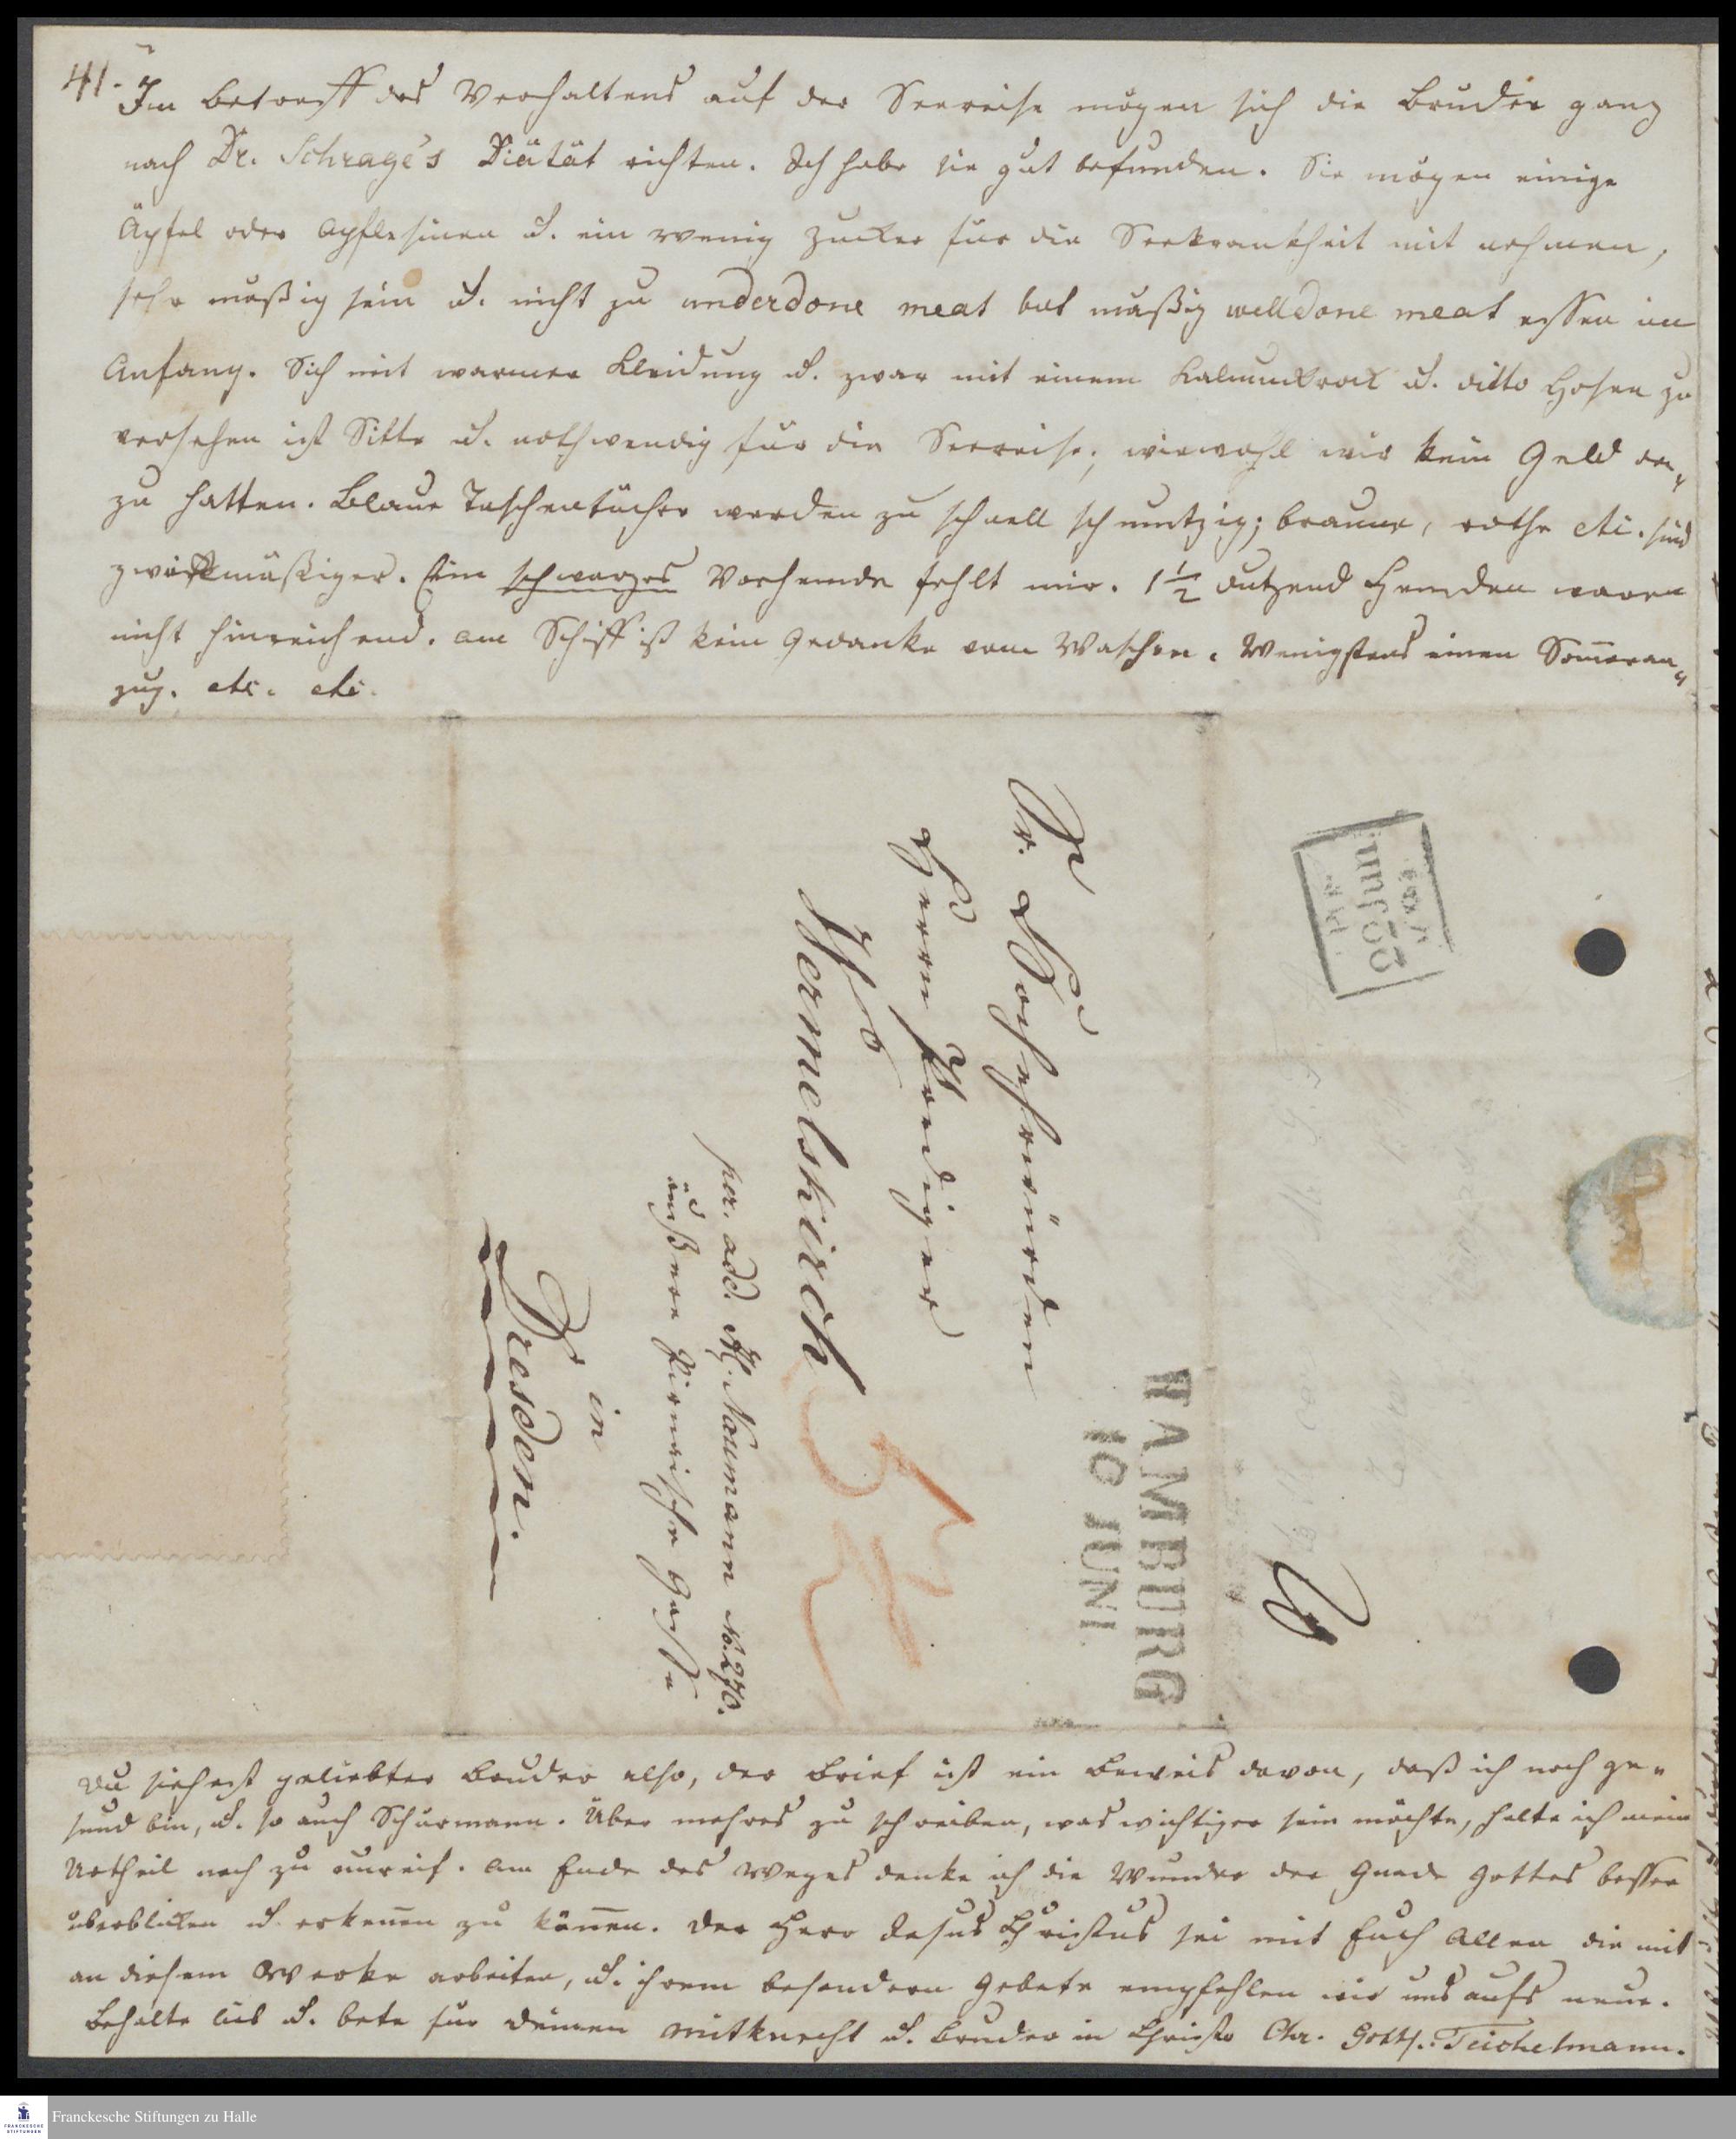 41. Im Betreff des Verhaltens auf der Seereise mögen sich die Brüder ganz
nach Dr. Schrage's Diätät richten. Ich habe sie gut befunden. Sie mögen einige
Äpfel oder Apflesinen u. ein wenig Zucker für die Seekrankheit mit nehmen,
sehr mäßig sein u. nicht zu underdone meat but mäßig welldone meat essen im
Anfang. Sich mit warmer Kleidung u. zwar mit einem Kalmuckrock u. ditto Hosen zu
versehen ist Sitte u. nothwendig für die Seereise, wiewohl wir kein Geld da-
zu hatten. Blaue Taschentücher werden zu schnell schmutzig; braune, rothe etc. sind
zweckmäßiger. Ein schwarzes Vorhemde fehlt mir. 1½ dutzend Hemden waren
nicht hinreichend. Am Schiff ist kein Gedanke vom Waschen. Wenigstens einen Som̄eran-
zug. etc. etc.
Sr. Hochehrwürden
Herrn Prediger
Wermelskirch
per. add. H. Naumann No. 270.
äußere Pirnaische Gasse
in
Dresden.
HAMBURG
10 JUNI
Du siehest geliebter Bruder also, der Brief ist ein Beweis davon, daß ich noch ge-
sund bin, u. so auch Schürmann. Über mehres zu schreiben, was wichtiger sein möchte, halte ich mein
Urtheil noch zu unreif. Am Ende des Weges denke ich die Wunder der Gnade Gottes besser
überblicken u. erken̄en zu kön̄en. Der Herr Jesus Christus sei mit Euch Allen die mit
an diesem Werke arbeiten, u. ihrem besondern Gebete empfehlen wir uns aufs neue.
Behalte lieb u. bete für deinen Mitknecht u. Bruder in Christo Chr. Gottl. Teichelmann.
Franckesche Stiftungen zu Halle
FRANCKESCHE
STIFTUNGEN